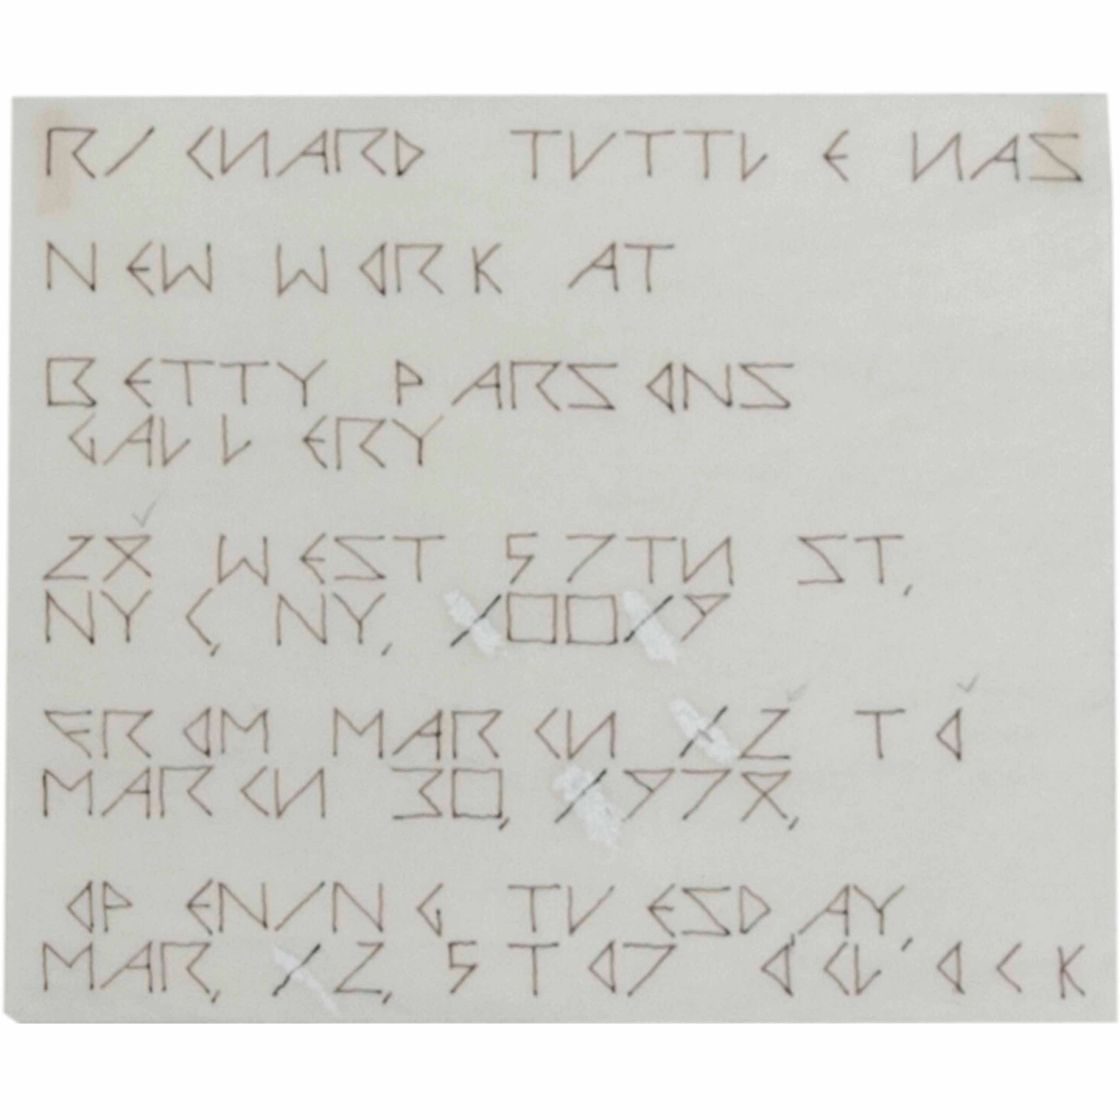 RICHARD TUTTLE HAS
NEW WORK AT
BETTY PARSONS
GALLERY
24 WEST 57TH ST,
NYC, NY, 10019
FROM MARCH 12 TO
MARCH 30, 1974,
OPENING TUESDAY,
MAR, 12, 5 TO 7 O'CL'OCK